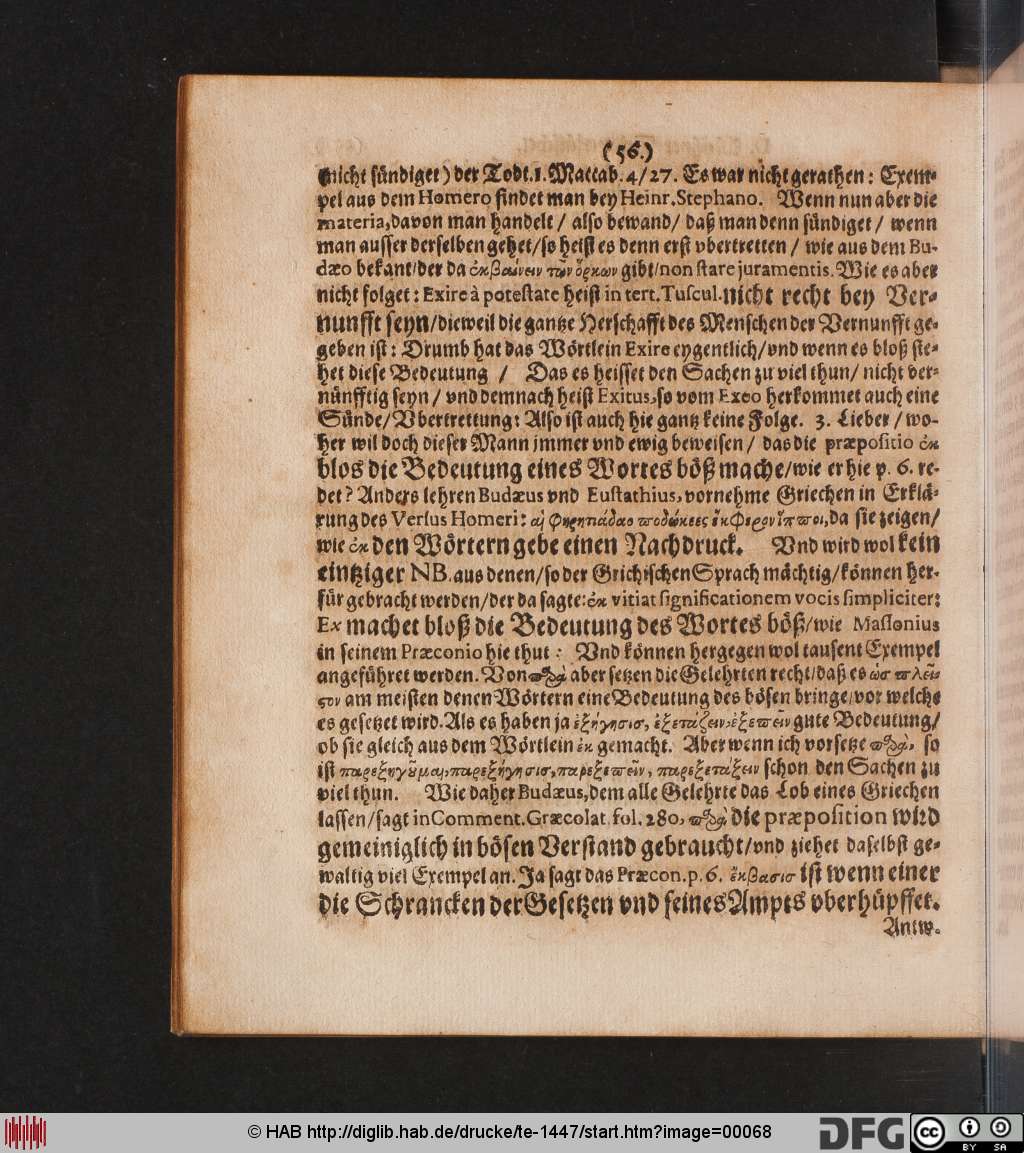 (56.)
nicht sündiget) der Todt. 1. Maccab. 4/27. Es war nicht gerathen: Exem-
pel aus dem Homero findet man bey Heinr. Stephano. Wenn nun aber die
materia, davon man handelt / also bewand / daß man denn sündiget / wenn
man ausser derselben gehet/so heist es denn erst vbertretten / wie aus dem Bu-
dæo bekant/der da ἐκβαίνειν τῶν ὅρκων gibt/non stare juramentis. Wie es aber
nicht folget: Exire à potestate heist in tert. Tuscul. nicht recht bey Ver-
nunfft seyn/dieweil die gantze Herschafft des Menschen der Vernunfft ge-
geben ist: Drumb hat das Wörtlein Exire eygentlich/vnd wenn es bloß ste-
het diese Bedeutung / Das es heisset den Sachen zu viel thun/ nicht ver-
nünfftig seyn / vnd demnach heist Exitus, so vom Exeo herkommet auch eine
Sünde/Vbertrettung: Also ist auch hie gantz keine Folge. 3. Lieber / wo-
her wil doch dieser Mann jmmer vnd ewig beweisen / das die præpositio ἐκ
blos die Bedeutung eines Wortes böß mache/wie er hie p. 6. re-
det? Anders lehren Budæus vnd Eustathius, vornehme Griechen in Erklä-
rung des Versus Homeri: αἱ Φηρητιάδαο ποδώκεες ἔκφερον ἵπποι, da sie zeigen/
wie ἐκ den Wörtern gebe einen Nachdruck. Vnd wird wol kein
eintziger NB. aus denen/so der Grichischen Sprach mächtig/können her-
für gebracht werden/der da sagte: ἐκ vitiat significationem vocis simpliciter:
Ex machet bloß die Bedeutung des Wortes böß/wie Massonius
in seinem Præconio hie thut: Vnd können hergegen wol tausent Exempel
angeführet werden. Von παρὰ aber setzen die Gelehrten recht/daß es ὡς πλεῖ-
στον am meisten denen Wörtern eine Bedeutung des bösen bringe/vor welche
es gesetzet wird. Als es haben ja ἐξήγησις, ἐξετάζειν, ἐξειπεῖν gute Bedeutung/
ob sie gleich aus dem Wörtlein ἐκ gemacht. Aber wenn ich vorsetze παρὰ, so
ist παρεξηγοῦμαι, παρεξήγησις, παρεξειπεῖν, παρεξετάξειν schon den Sachen zu
viel thun. Wie daher Budæus, dem alle Gelehrte das Lob eines Griechen
lassen/sagt in Comment. Græcolat. fol. 280, παρὰ die præposition wird
gemeiniglich in bösen Verstand gebraucht/vnd ziehet daselbst ge-
waltig viel Exempel an. Ja sagt das Præcon. p. 6. ἔκβασις ist wenn einer
die Schrancken der Gesetzen vnd seines Ampts vberhüpffet.
Antw.
© HAB http://diglib.hab.de/drucke/te-1447/start.htm?image=00068
DFG
cc
BY SA